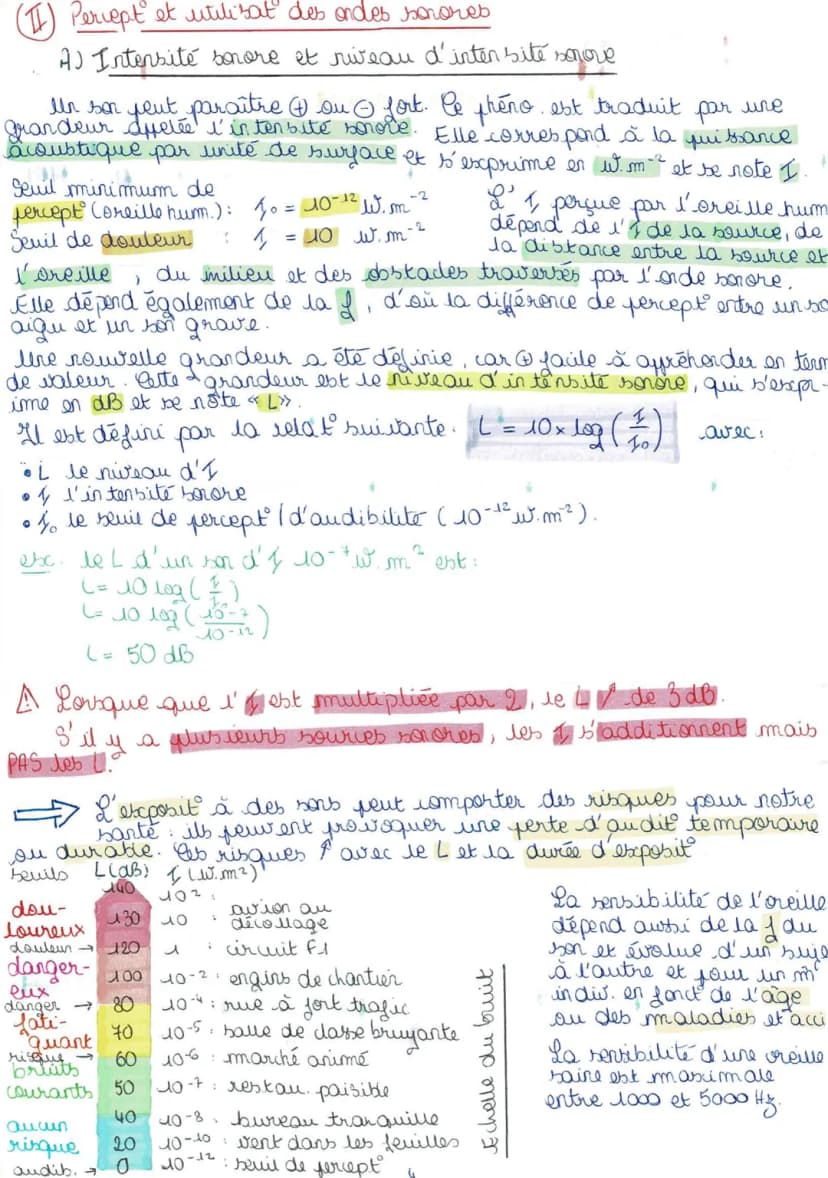 (II) Percept° et utilisat° des ondes sonores
A) Intensité sonore et niveau d'intensité sonore
Un son peut paraître ⊕ ou ⊖ fort. Ce phéno. est traduit par une
grandeur appelée l'intensité sonore. Elle correspond à la puissance
acoustique par unité de surface et s'exprime en W.m⁻² et se note I.
Seuil minimum de
percept° (oreille hum.) : I₀ = 10⁻¹² W.m⁻²
Seuil de douleur : I = 10 W.m⁻²
L' I perçue par l'oreille hum
dépend de l'I de la source, de
la distance entre la source et
l'oreille, du milieu et des obstacles traversés par l'onde sonore.
Elle dépend également de la f, d'où la différence de percept° entre un so
aigu et un son grave.
Une nouvelle grandeur a été définie, car ⊕ facile à appréhender en term
de valeur. Cette grandeur est le niveau d'intensité sonore, qui s'expr-
ime en dB et se note « L ».
Il est défini par la relat° suivante. L = 10 × log (I/I₀) avec :
• L le niveau d'I
• I l'intensité sonore
• I₀ le seuil de percept° / d'audibilité (10⁻¹² W.m⁻²).
ex. le L d'un son d'I 10⁻⁷ W.m² est :
L = 10 log (I/I₀)
L = 10 log (10⁻⁷/10⁻¹²)
L = 50 dB
⚠ Lorsque que l'I est multipliée par 2, le L ↗ de 3 dB.
S'il y a plusieurs sources sonores, les I s'additionnent mais
PAS les L.
⇒ L'exposit° à des sons peut comporter des risques pour notre
santé : ils peuvent provoquer une perte d'audit° temporaire
ou durable. Ces risques ↗ avec le L et la durée d'exposit°
seuils L(dB) I (W.m²)
140 10² :
dou-
loureux
130 10 : avion au
décollage
douleur → 120 1 : circuit F1
danger-
eux
100 10⁻² : engins de chantier
danger → 80 10⁻⁴ : rue à fort trafic
fati-
guant
70 10⁻⁵ : salle de classe bruyante
risque → 60 10⁻⁶ : marché animé
bruits
courants
50 10⁻⁷ : restau. paisible
40 10⁻⁸ : bureau tranquille
aucun
risque
20 10⁻¹⁰ : vent dans les feuilles
audib. → 0 10⁻¹² : seuil de percept°
échelle du bruit
La sensibilité de l'oreille
dépend aussi de la f du
son et évolue d'un suje
à l'autre et pour un m̂
indiv. en fonct° de l'âge
ou des maladies et acci
La sensibilité d'une oreille
saine est maximale
entre 1000 et 5000 Hz.